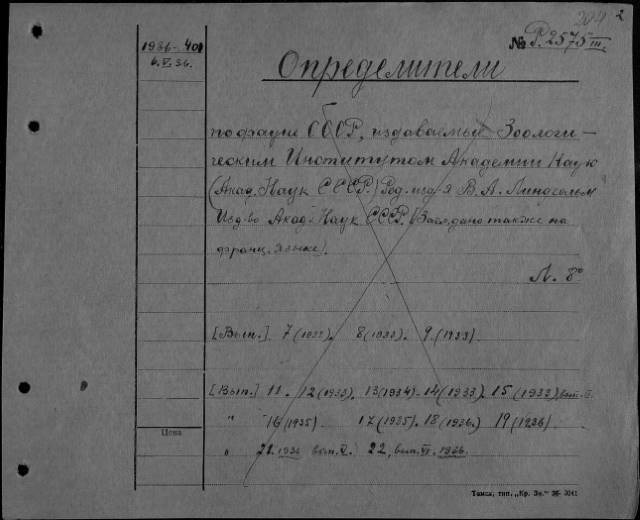 204 2
1936-401
6.V.36.
№ P.2575 III
Определители
по фауне СССР, издаваемые Зоологи-
ческим Институтом Академии Наук
(Акад. Наук СССР) Ред. изд-я В. А. Линдгольм
Изд-во Акад. Наук СССР. (Загл. дано также на
франц. языке).
Л. 8°
[Вып.] 7 (1933). 8 (1933). 9 (1933).
[Вып.] 11. 12 (1933). 13 (1934). 14 (1933). 15 (1933), вып.
" 16 (1935) 17 (1935). 18 (1936.) 19 (1936)
" 21. 1936 вып. V. 22, вып. VI. 1936.
Цена
Томск, тип. „Кр. Зн.“ 36- 3041